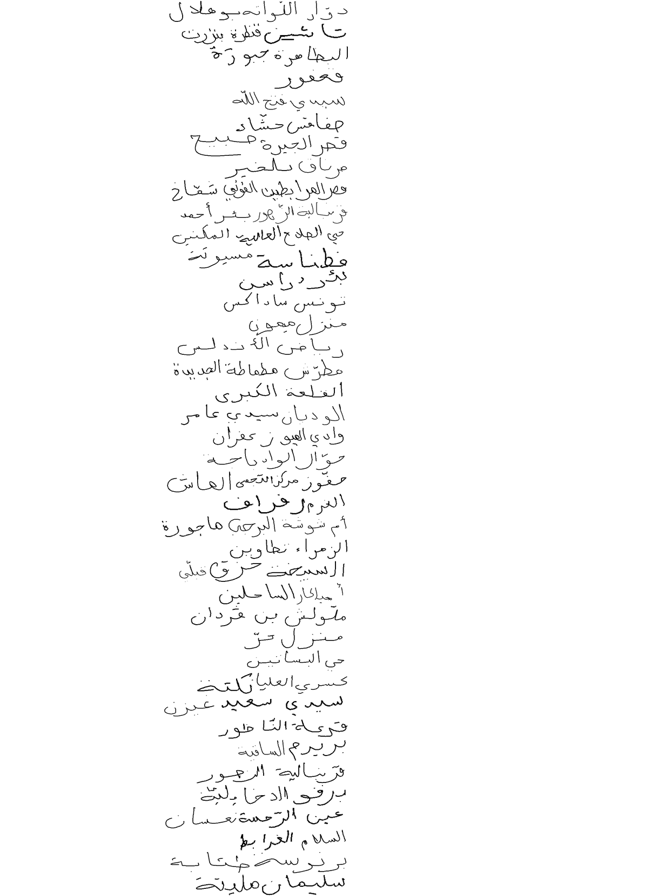 دوار اللواتة بوهلال
تاشين قنطرة بنزرت
البطاهرة حبوزة
قعفور
سيدي فتح الله
صفاقس حشاد
قصر الجيرة صبيح
مرناق بلخير
قصر المرابطين الفوقي شقاخ
قرنبالية الزهور بئر أحمد
حي الصلاح العالية المكنين
فطناسة مسيوتة
بئر دراسن
تونس ساداكس
منزل ميمون
رياض الأندلس
مطرش مطماطة الجديدة
القلعة الكبرى
الوديان سيدي عامر
وادي الميو زعفران
حوال الواد باجة
حفوز مركز التجمع العاش
القرم رفراف
أم شوشة البرجين ماجورة
الزهراء تطاوين
السبيخة حزق قبلي
الساحلين
ملولش بن قردان
منزل حر
حي البساتين
كسرى العليا تكتة
سيدي سعيد عيزن
قرعة الناظور
بريرم الساقية
قرنبالية الزهور
برقو الدخايلية
عين الرحمة نعسان
السلام المرابط
برنوسة طتابة
سليمان مليتة